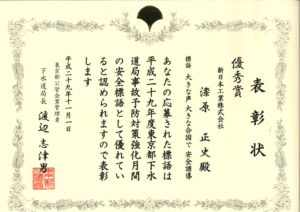 表彰状
優秀賞
新日本工業株式会社
漆原 正史殿
標語 大きな声 大きな合図で 安全誘導
あなたの応募された標語は
平成二十九年度東京都下水
道局事故予防対策強化月間
の安全標語として優れてい
ると認められますので表彰
します
平成二十九年十一月一日
東京都公営企業管理者
下水道局長 渡辺 志津男